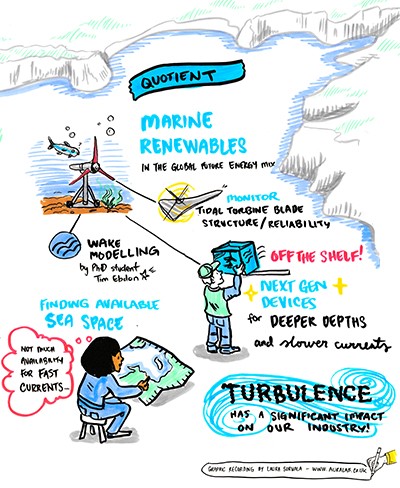 QUOTIENT
MARINE
RENEWABLES
IN THE GLOBAL FUTURE ENERGY MIX
MONITOR
TIDAL TURBINE BLADE
STRUCTURE/RELIABILITY
WAKE
MODELLING
by PhD student
Tim Ebdon
OFF THE SHELF!
NEXT GEN
DEVICES
for DEEPER DEPTHS
and slower currents
FINDING AVAILABLE
SEA SPACE
NOT MUCH
AVAILABILITY
FOR FAST
CURRENTS...
TURBULENCE
HAS A SIGNIFICANT IMPACT
ON OUR INDUSTRY!
GRAPHIC RECORDING BY LAURA SORVALA - WWW.AURALAB.CO.UK